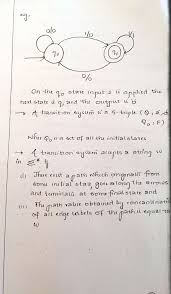 eg.
0/0
1/0
1/1
q0
q1
0/0
On the q0 state input 1 is applied the
next state q1 and the output is 0
→ A transition system is a 5-tuple (Q, Σ, δ,
Q0, F)
Where Q0 is set of all the initial states
→ A transition system accepts a string w
in Σ* if
i) There exist a path which originates from
some initial state goes along the arrows
and terminate at some final state and
ii) The path value obtained by concatenation
of all edge labels of the path is equal to
w